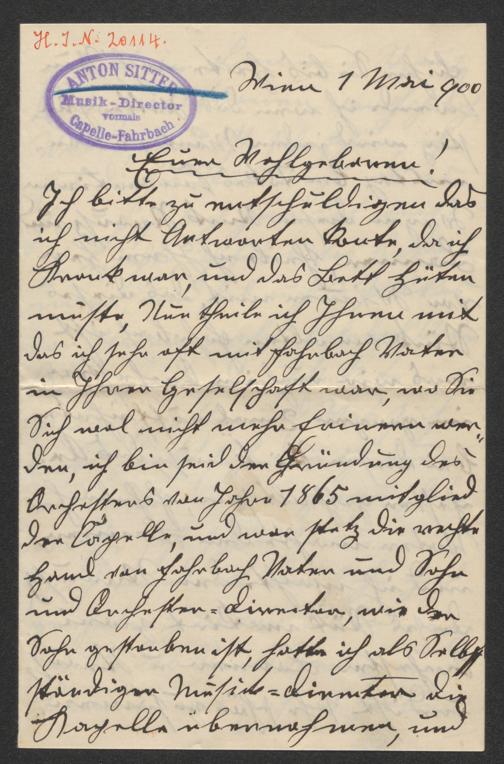 H. I. N. 20114.
ANTON SITTER
Musik-Director
vormals
Capelle-Fahrbach
Wien 1 Mai 900
Euer Wohlgeboren!
Ich bitte zu entschuldigen das
ich nicht Antworten konte, da ich
Krank war, und das Bett hüten
muste, Nun theile ich Ihnen mit
das ich sehr oft mit Fahrbach Vater
in Ihrer Geselschaft war, wo Sie
Sich wol nicht mehr Erinern wer-
den, ich bin seid der Gründung des
Orchesters von Jahre 1865 mitglied
der Capelle, und war stetz die rechte
Hand von Fahrbach Vater und Sohn
und Orchester-Director, wie der
Sohn gestorben ist, hatte ich als Selbst
ständiger Musik-Director die
Kapelle übernohmen, und